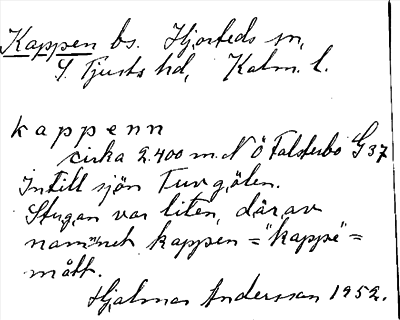 Kappen bs. Hjorteds sn,
S. Tjusts hd, Kalm. l.
kappenn
cirka 2.400 m. N Ö Falsterbo G 37
Intill sjön Tuvgölen.
Stugan var liten, därav
namnet kappen = "kappe" =
mått.
Hjalmar Andersson 1952.